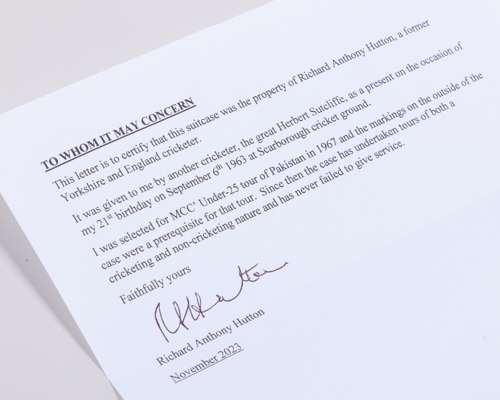 TO WHOM IT MAY CONCERN
This letter is to certify that this suitcase was the property of Richard Anthony Hutton, a former
Yorkshire and England cricketer.
It was given to me by another cricketer, the great Herbert Sutcliffe, as a present on the occasion of
my 21st birthday on September 6th 1963 at Scarborough cricket ground.
I was selected for MCC' Under-25 tour of Pakistan in 1967 and the markings on the outside of the
case were a prerequisite for that tour. Since then the case has undertaken tours of both a
cricketing and non-cricketing nature and has never failed to give service.
Faithfully yours
RAHutton
Richard Anthony Hutton
November 2023